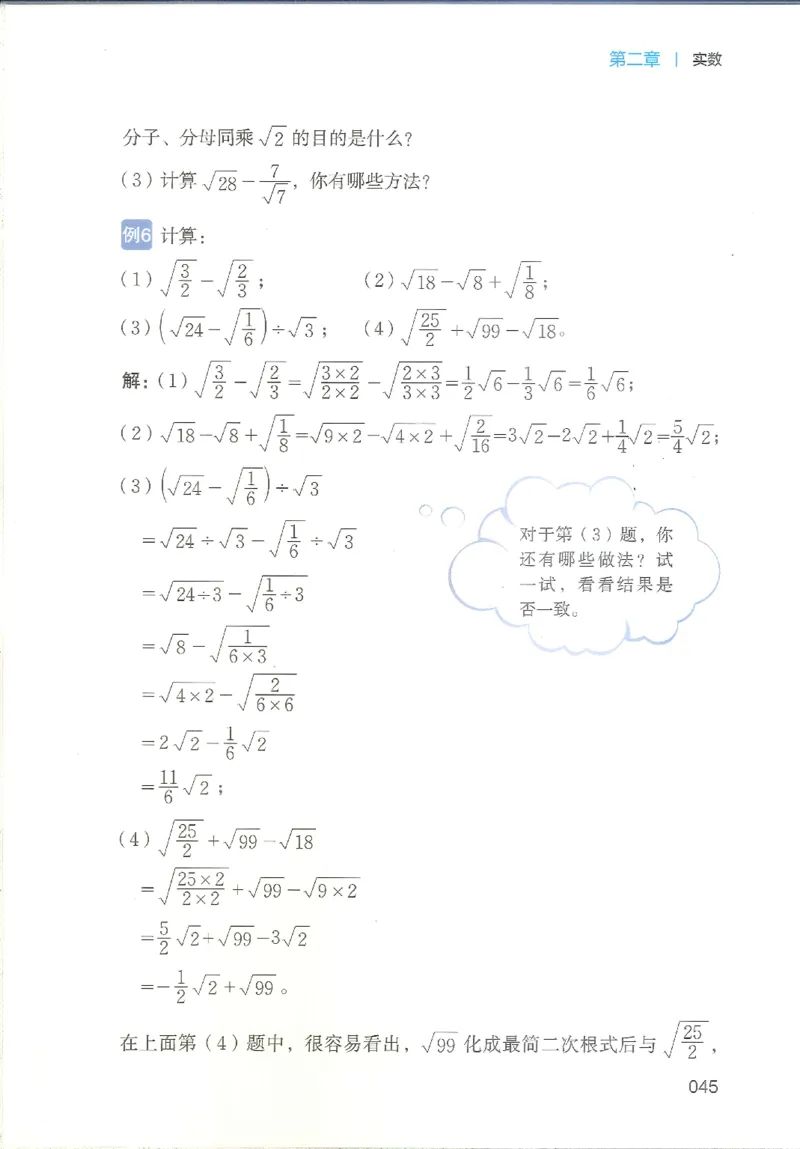 第二章 | 实数
分子、分母同乘 √2 的目的是什么？
（3）计算 √28 − 7/√7，你有哪些方法？
例6 计算：
（1）√(3/2) − √(2/3)； （2）√18 − √8 + √(1/8)；
（3）(√24 − √(1/6)) ÷ √3； （4）√(25/2) + √99 − √18。
解：（1）√(3/2) − √(2/3) = √((3×2)/(2×2)) − √((2×3)/(3×3)) = 1/2√6 − 1/3√6 = 1/6√6；
（2）√18 − √8 + √(1/8) = √(9×2) − √(4×2) + √(2/16) = 3√2 − 2√2 + 1/4√2 = 5/4√2；
（3）(√24 − √(1/6)) ÷ √3
= √24 ÷ √3 − √(1/6) ÷ √3
= √(24÷3) − √(1/6÷3)
= √8 − √(1/(6×3))
= √(4×2) − √(2/(6×6))
= 2√2 − 1/6√2
= 11/6√2；
对于第（3）题，你
还有哪些做法？试
一试，看看结果是
否一致。
（4）√(25/2) + √99 − √18
= √((25×2)/(2×2)) + √99 − √(9×2)
= 5/2√2 + √99 − 3√2
= −1/2√2 + √99。
在上面第（4）题中，很容易看出，√99 化成最简二次根式后与 √(25/2)，
045